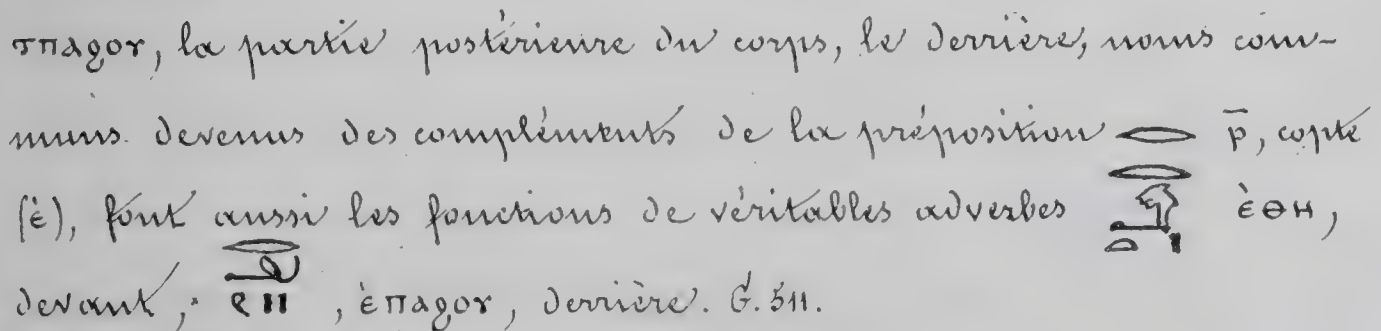 πⲡⲁϩⲟⲩ, la partie postérieure du corps, le derrière, noms com-
muns devenus des compléments de la préposition 𓂋 ⲣ̄, copte
(ⲉ̀), font aussi les fonctions de véritables adverbes ⲉ̀ⲑⲏ,
devant; , ⲉ̀ⲡⲁϩⲟⲩ, derrière. G. 511.